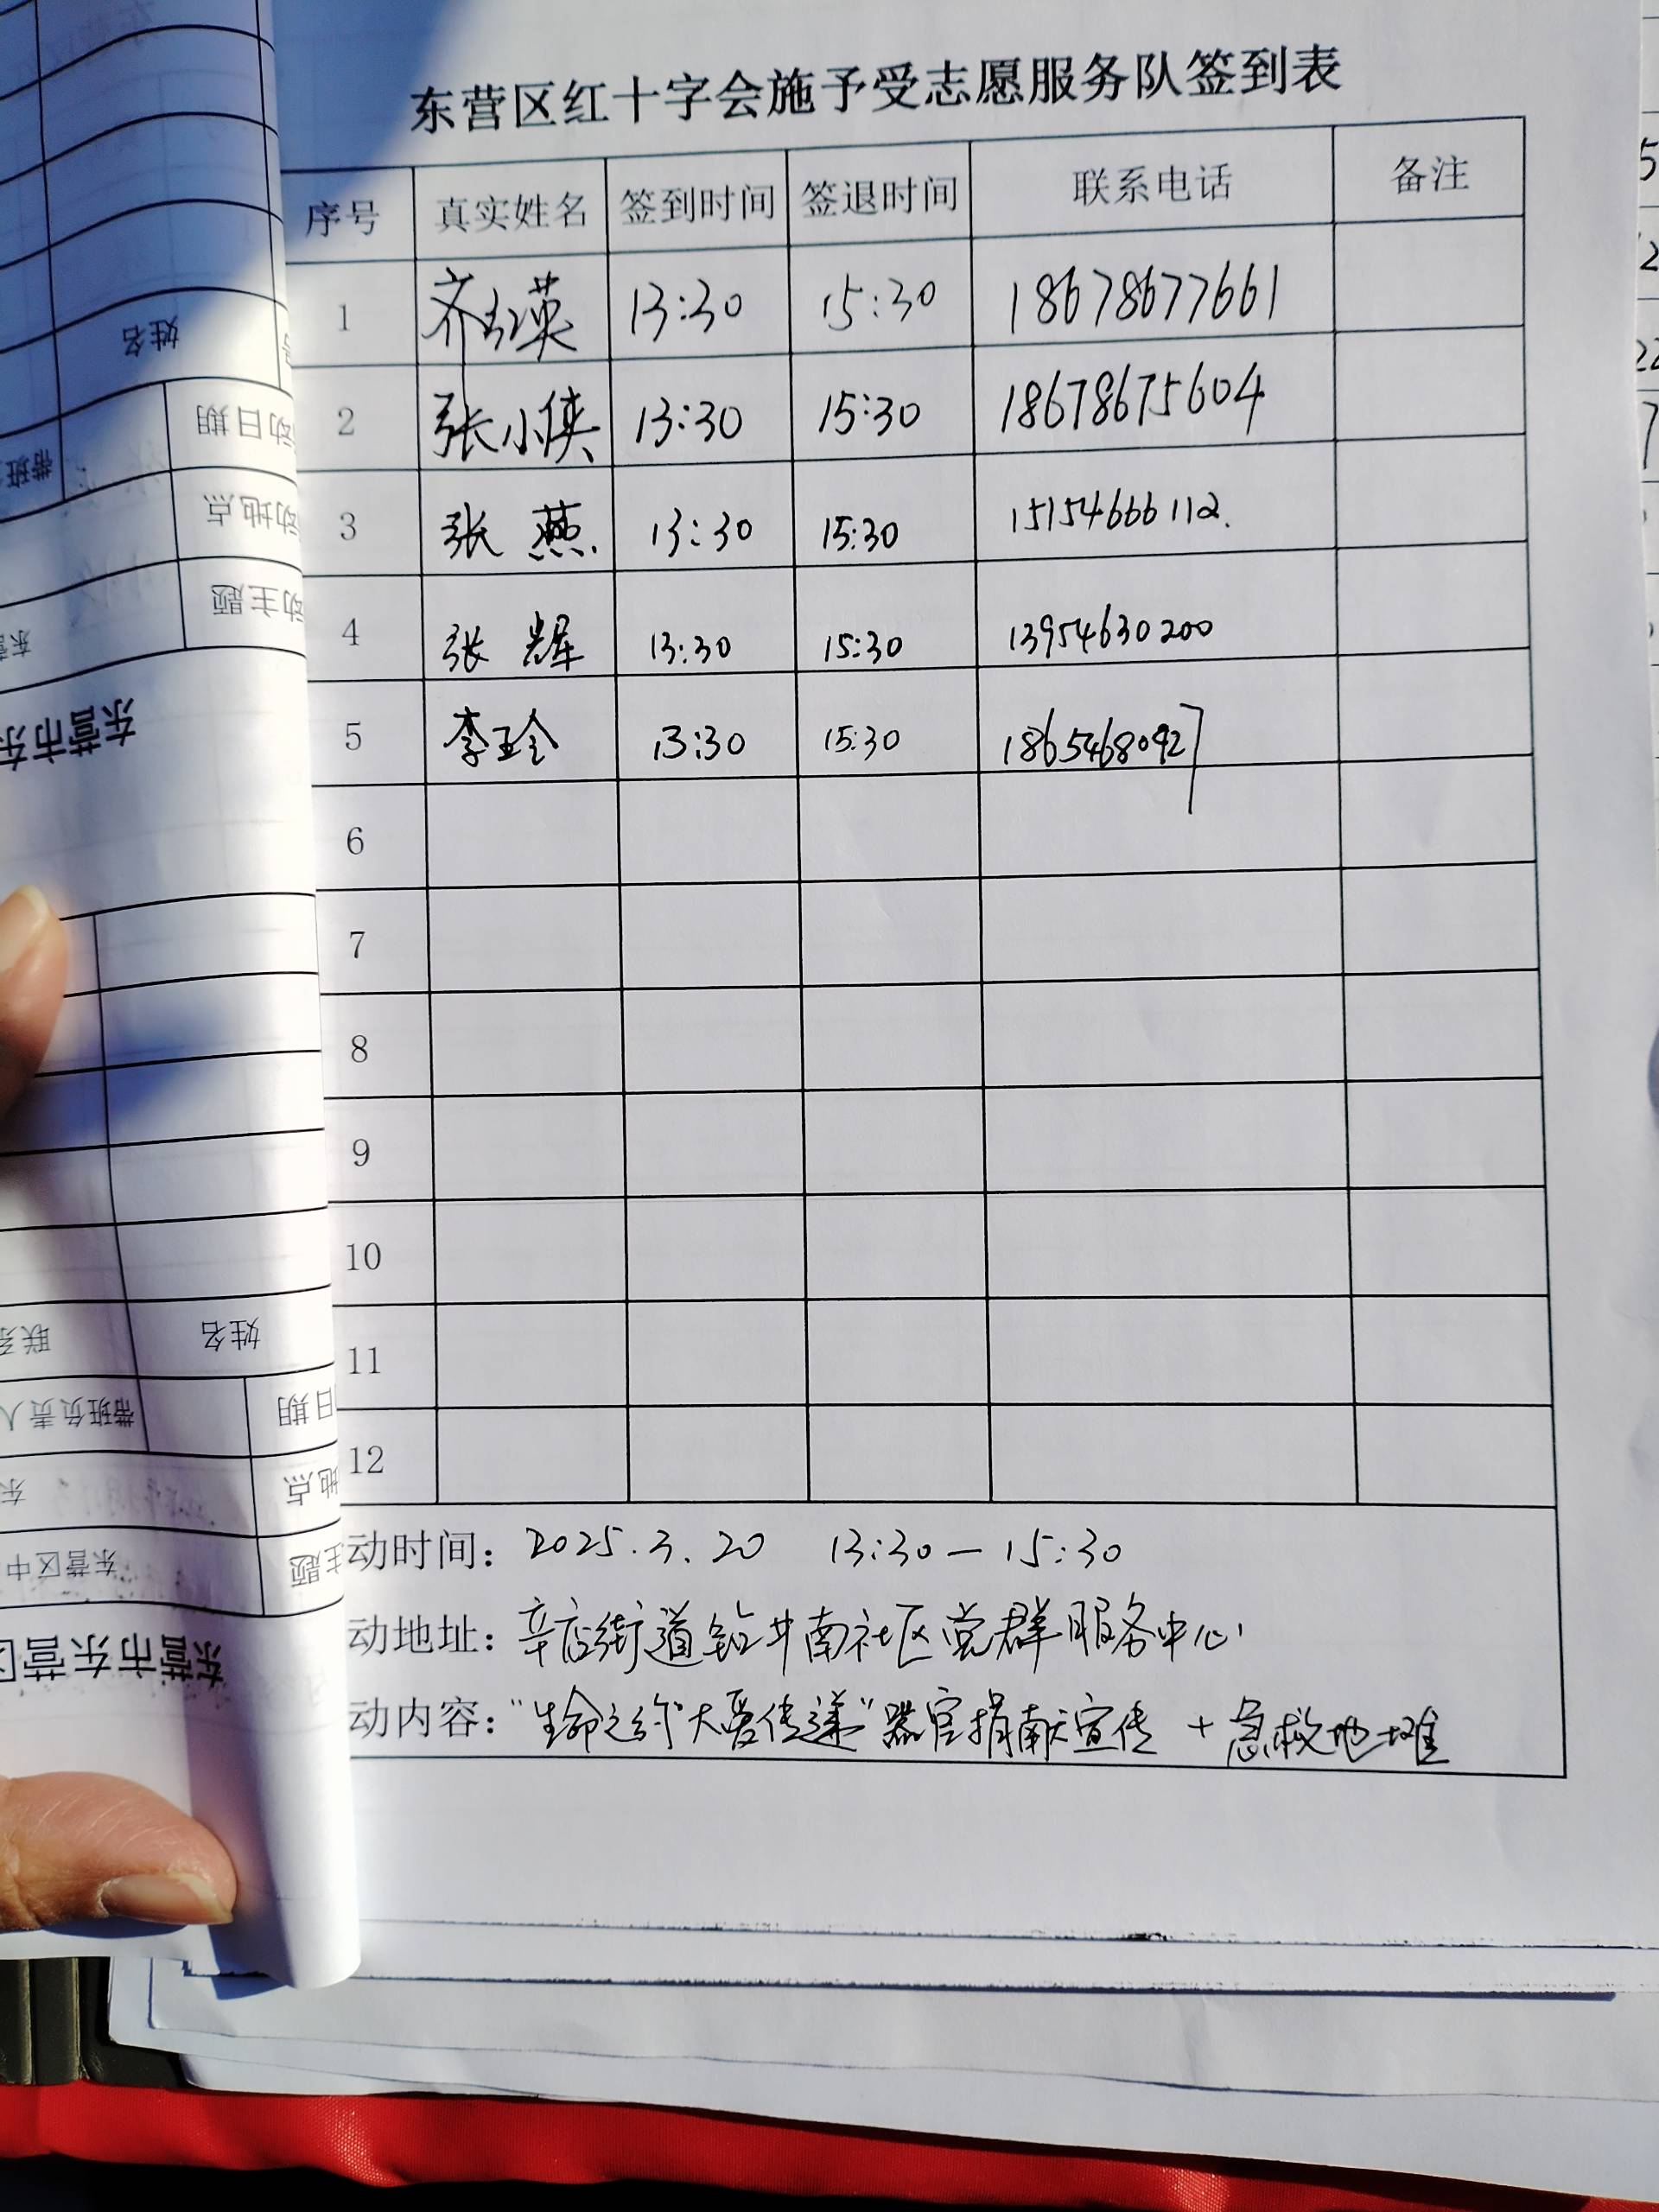 东营区红十字会施予受志愿服务队签到表
序号 真实姓名 签到时间 签退时间 联系电话 备注
1 齐红英 13:30 15:30 18678677661
2 张小侠 13:30 15:30 18678675604
3 张燕 13:30 15:30 15154666112
4 张辉 13:30 15:30 13954630200
5 李玲 13:30 15:30 18654680927
6
7
8
9
10
11
12
动时间：2025.3.20 13:30—15:30
动地址：辛店街道钻井南社区党群服务中心
动内容："生命之约 大爱传递"器官捐献宣传 + 急救地摊
姓名
动日期
带班
动地点
动主题
东营
东营市东
姓名
联系
日期
带班负责人
地点
东
主题
东营区中
东营市东营区